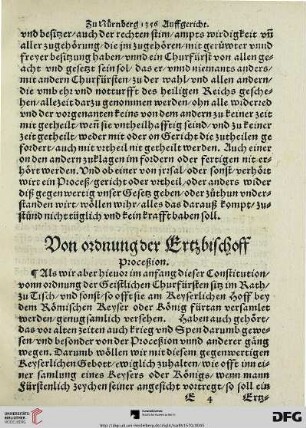 Zu Nürnberg 1356 Auffgericht.
vnd besitzer/auch der rechten stim/ampts wirdigkeit vñ
aller zugehörung/die jm zugehören/mit gerüwter vnnd
freyer besitzung haben/vnnd ein Churfürst von allen ge-
acht vnd gesetzt sein sol/das er vnnd niemants anders/
mit andern Churfürsten/zu der wahl/vnd allen andern/
die vmb ehr vnd notturfft des heiligen Reichs gesche-
hen/allezeit darzu genommen werden/ohn alle widerred
vnd der vorgenanten keins von dem andern zu keiner zeit
mit getheilt/weil sie vntheilhafftig seind/vnd zu keiner
zeit getheilt/weder mit oder on Gericht die zutheilen ge
fordert/auch mit vrtheil nit getheilt werden. Auch einer
on den andern zuklagen im fordern oder fertigen nit er-
hört werden. Vnd ob einer von jrrsal/oder sonst/verhört
wirt ein Proceß/gericht oder vrtheil/oder anders wider
diß gegenwertig vnser Gesetz geben/oder züthun vnder-
standen wirt/wöllen wir/alles das darauß kompt/zu-
stünd nicht tüglich vnd kein krafft haben sol.
Von ordnung der Ertzbischoff
Proceßion.
¶ Als wir aber hieuor im anfang dieser Constitution/
vonn ordnung der Geistlichen Churfürsten sitz im Rath/
zu Tisch/vnd sonst/so offt sie am Keyserlichen Hoff bey
dem Römischen Keyser oder König fürtan versamlet
werden/genugsamlich versehen. Haben auch gehört/
das vor alten zeiten auch krieg vnd Spen darumb gewe
sen/vnd besonder von der Proceßion vnnd anderer gäng
wegen. Darumb wöllen wir mit diesem gegenwertigen
Keyserlichen Gebott/ewiglich zuhalten/wie offt inn ei-
ner samlung eines Keysers oder Königs/wenn mann
Fürstenlich zeychen seiner angesicht vortregt/so soll ein
E 4 Ertz-
UNIVERSITÄTS-
BIBLIOTHEK
HEIDELBERG
DFG